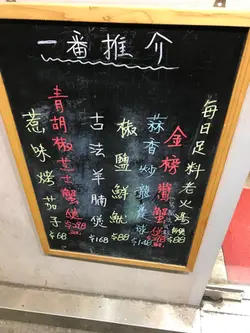 一番推介
每日足料老火湯
金榜
蒜香炒
椒鹽鮮魷
$88
古法羊腩煲
$168
青胡椒芝士蟹煲
惹味烤茄子
$68